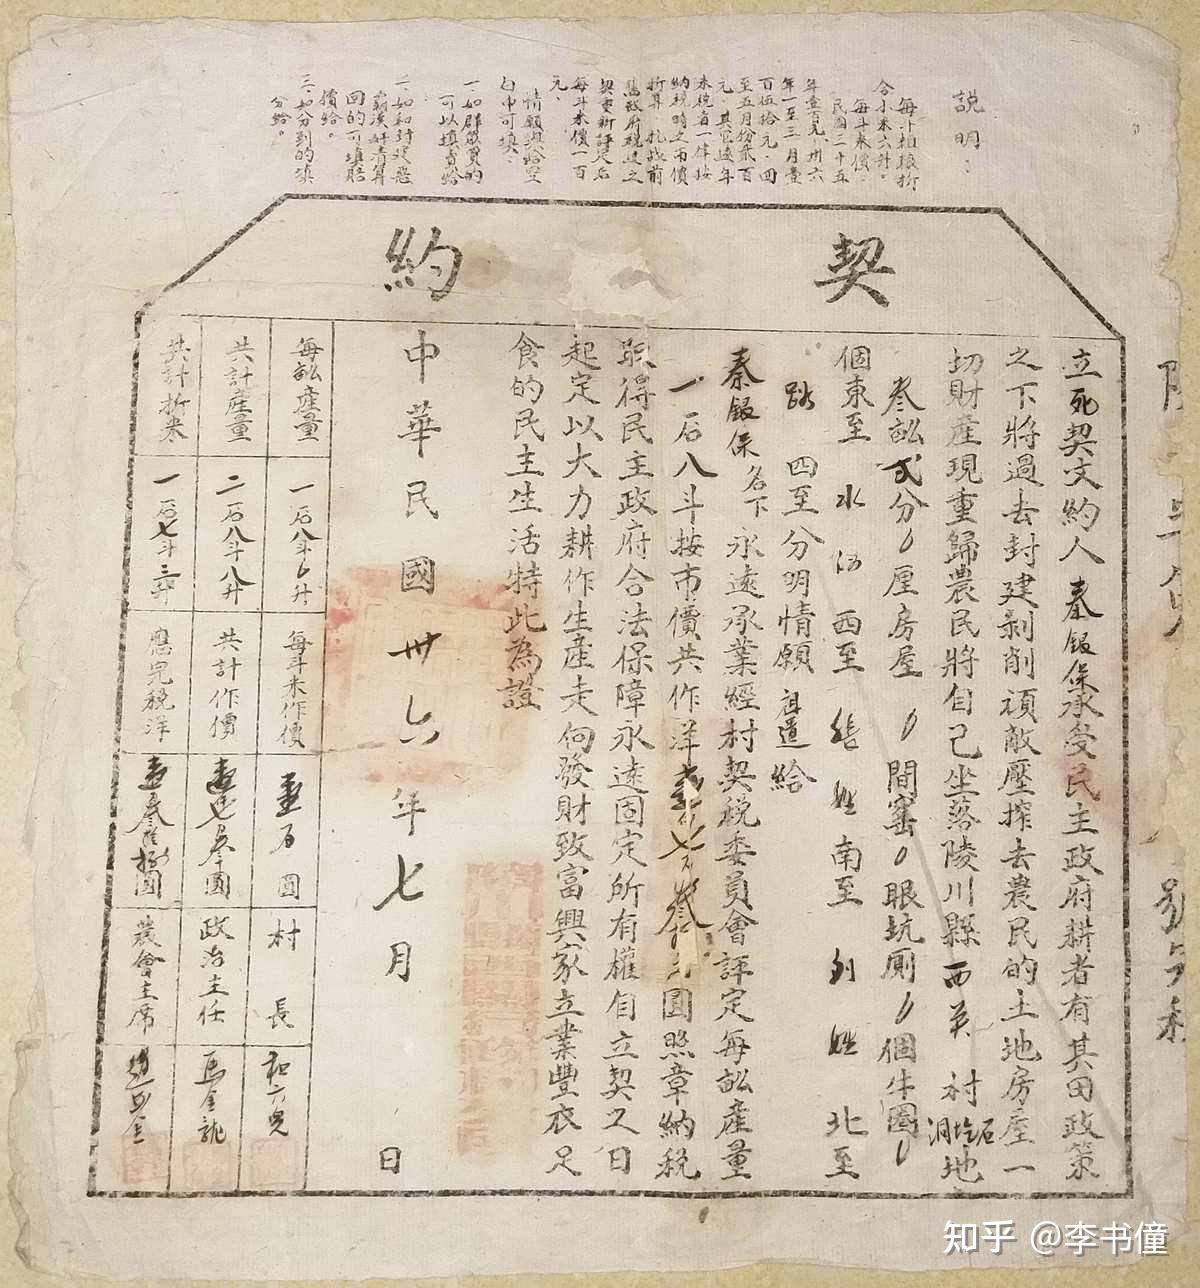 說明：
每斗粗粮折
合小米六升。
每斗米價：
民國二十五
年壹百元，卅六
年一至三月壹
百伍拾元，四
至五月份貳百
元，其它遠年
未稅者一律按
納稅時之市價
折算，抗战前
舊政府稅過之
契重新評定后
每斗米價一百
元。
情願與給坚
白中可填：
一．如群眾買的
可以填賣給
二．如和封建惡
霸漢奸清算
回的可填賠
償給。
三．如分到的填
分給。
契約
立死契文約人秦银保承受民主政府耕者有其田政策
之下將過去封建剝削頑敵壓搾去農民的土地房屋一
切財產現重歸農民將自己坐落陵川縣西英村石圪洞地
叁畝弍分0厘房屋0間窰0眼坑厠0個牛圈0
個東至水河西至姓南至姓北至
路四至分明情願祖遺給
秦银保名下永遠承業經村契税委員會評定每畝產量
一石八斗按市價共作洋圓照章納税
取得民主政府合法保障永遠固定所有權自立契之日
起定以大力耕作生產走向發財致富興家立業豐衣足
食的民主生活特此為證
中華民國卅六年七月日
每畝產量 一石八斗0升 每斗米作價 壹百圓 村長 和六兒
共計產量 二石八斗八升 共計作價 圓 政治主任 馬金龍
共計折米 一石七斗三升 應完税洋 圓 農會主席
知乎 @李书僮